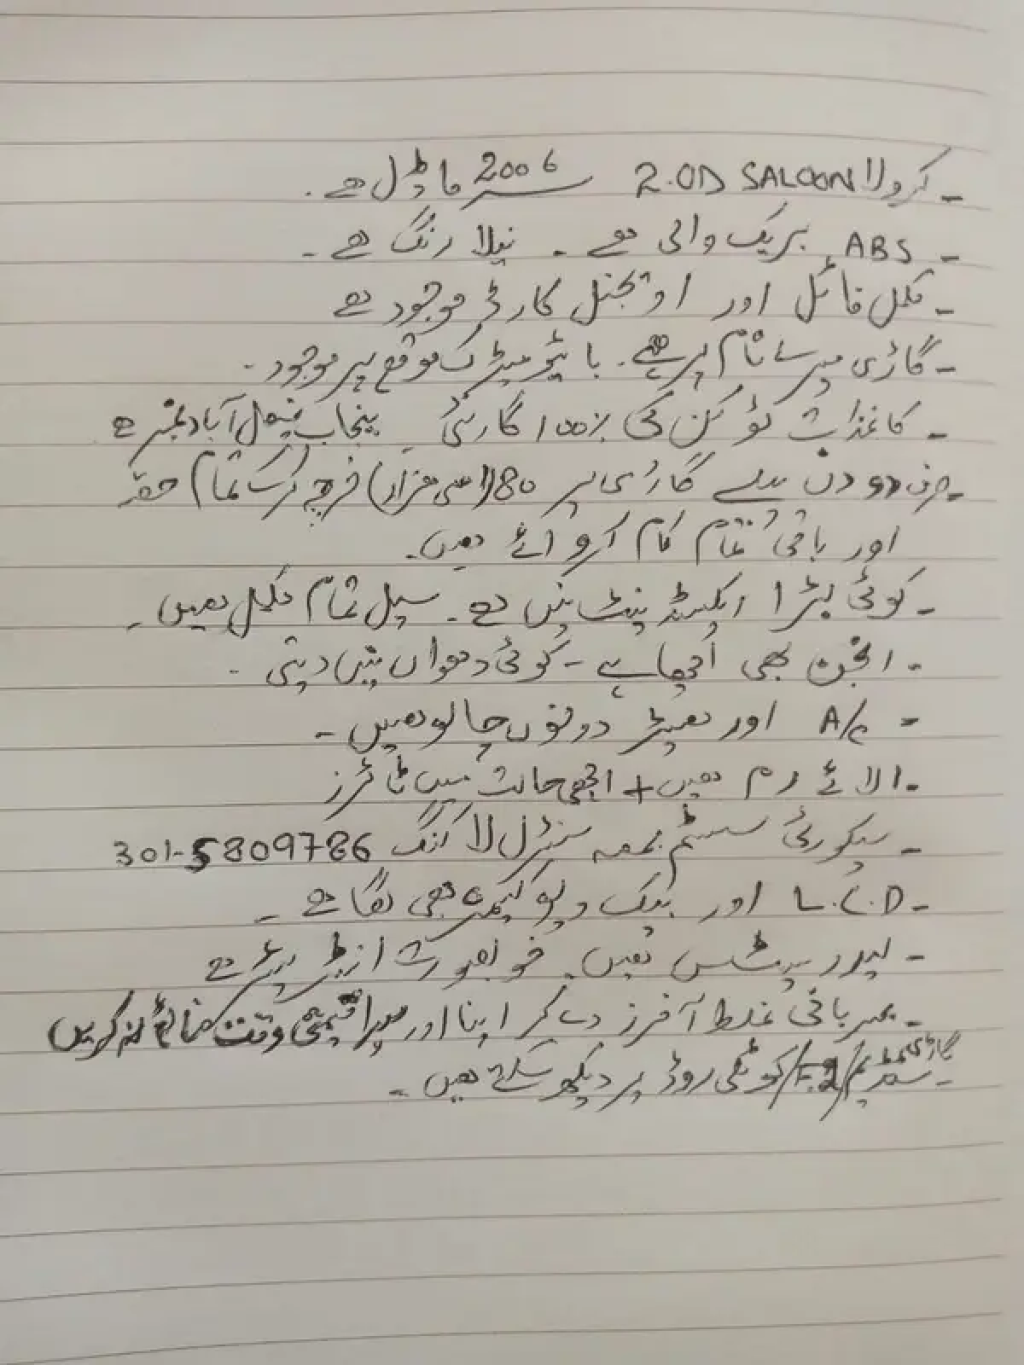 - کرولا 2.0D SALOON 2006 ماڈل ہے.
- ABS بریک والی ہے - نیلا رنگ ہے -
- مکمل فائل اور اوریجنل کارڈ موجود ہے
- گاڑی میرے نام پر ہے. بائیومیٹرک موقع پر موجود -
- کاغذات ٹوکن کی 100% گارنٹی پنجاب فیصل آباد نمبر ہے
- صرف دو دن پہلے گاڑی پر 80(اسی ہزار) خرچہ کر تمام
اور باقی تمام کام کروائے ہیں.
- کوئی بڑا ایکسیڈینٹ نہیں ہے - سیل تمام مکمل ہیں -
- انجن بھی اچھا ہے - کوئی دھواں نہیں دیتی -
- A/C اور ہیٹر دونوں چالو ہیں -
- الائے رم ہیں + اچھی حالت میں ٹائرز
- سیکورٹی سسٹم بمعہ سنٹرل لاکنگ 301-5809786
- L.C.D اور بیک ویو کیمرہ بھی لگا ہے -
- لیدر سیٹس ہیں. خوبصورت انٹیریئر ہے
- مہربانی غلط آفرز دے کر اپنا اور میرا قیمتی وقت ضائع نہ کریں
- گاڑی سٹیڈیم / کوٹھی روڈ پر دیکھ سکتے ہیں -